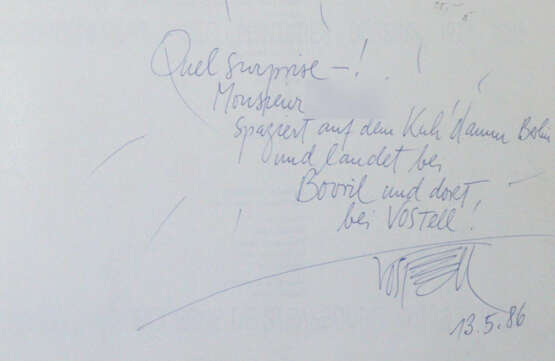 Quel surprise —!
Monsieur
spaziert auf dem Kuh'damm Berlin
und landet bei
Bovril und dort,
bei VOSTell!
VOSTELL
13.5.86